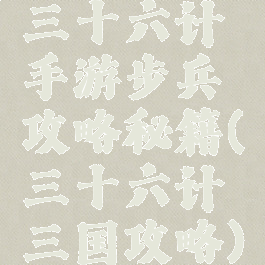 三十六计
手游步兵
攻略秘籍(
三十六计
三国攻略)